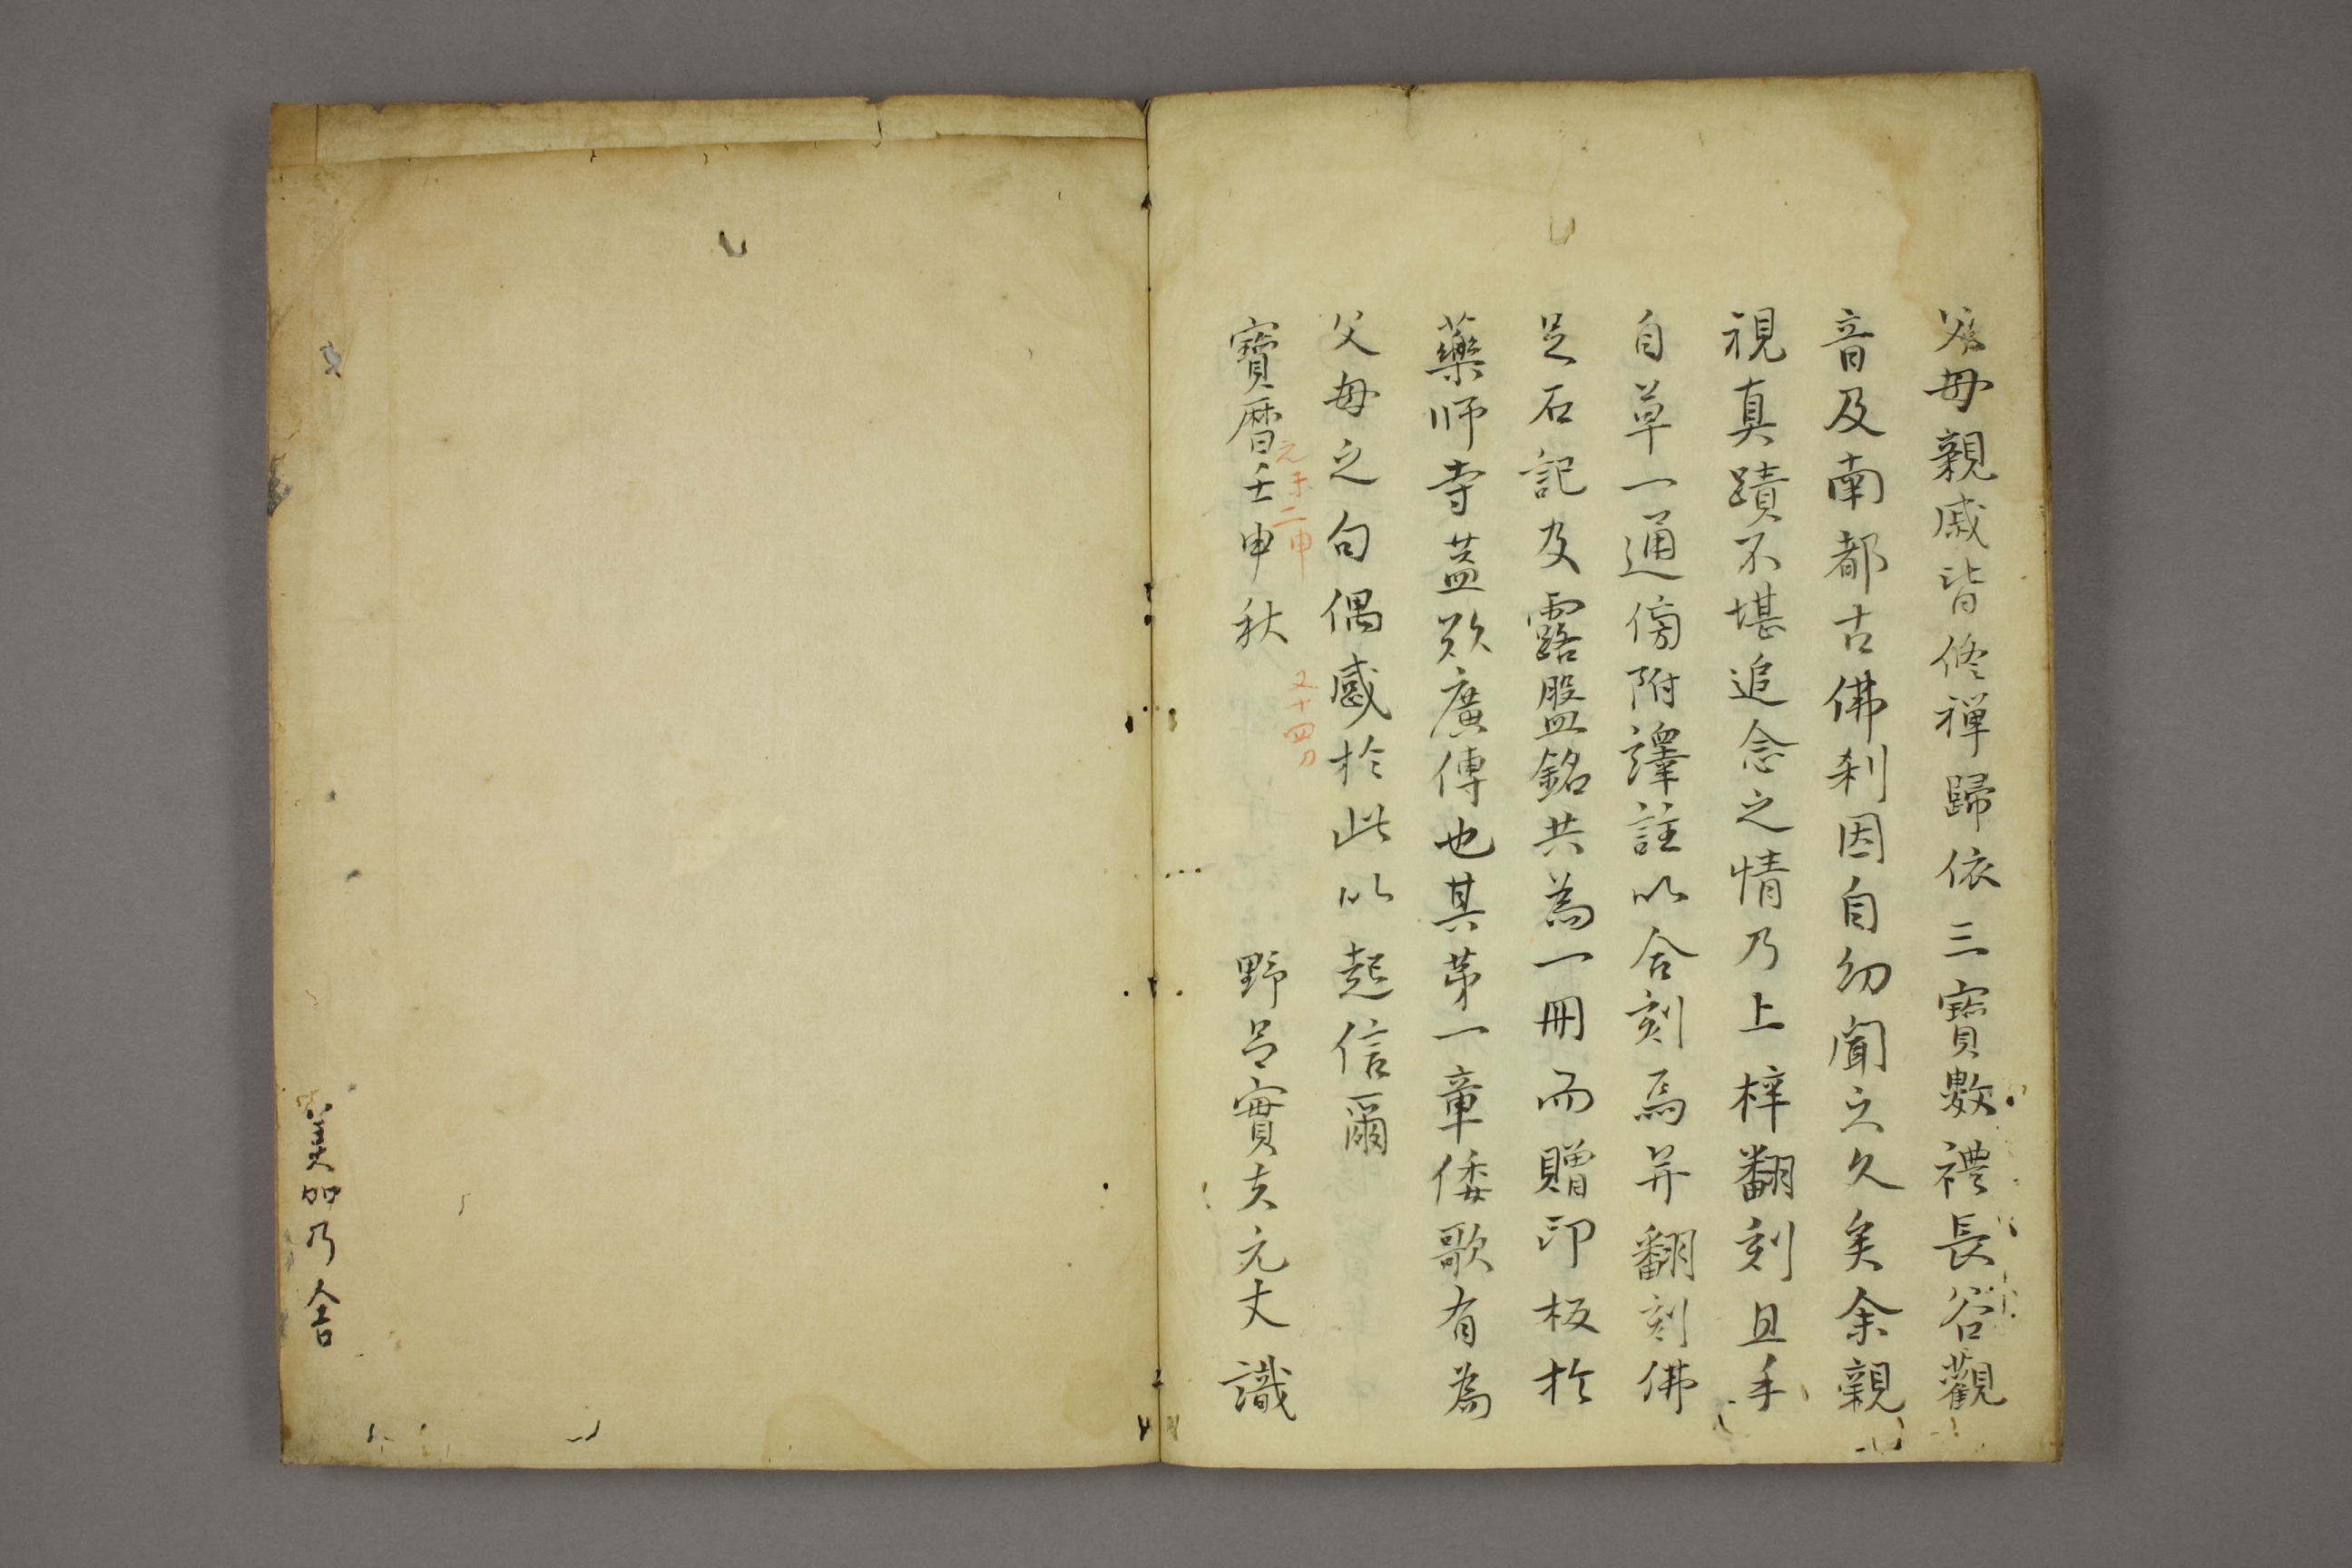 父母親戚皆修禅歸依三寶數禮長谷觀
音及南都古佛刹因自幼聞之久矣余親
視真蹟不堪追念之情乃上梓翻刻且手
自草一通傍附譯註以合刻焉并翻刻佛
足石記及露盤銘共為一冊而贈印板於
藥師寺蓋欲廣傳也其苐一章倭歌有為
父母之句偶感於此以起信爾
元未二申
寳暦壬申秋
又十四刀
野呂實夫元丈識
美加乃舎